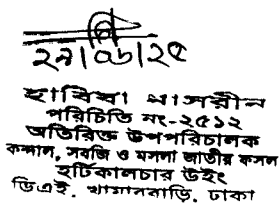 ২৯/০৬/২৫
হাবিবা নাসরীন
পরিচিতি নং-২৫১২
অতিরিক্ত উপপরিচালক
কন্দাল, সবজি ও মসলা জাতীয় ফসল
হর্টিকালচার উইং
ডিএই, খামারবাড়ি, ঢাকা